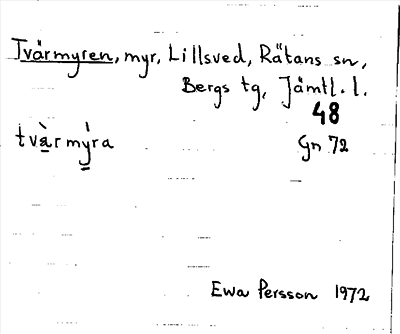 Tvärmyren, myr, Lillsved, Rätans sn,
Bergs tg, Jämtl. l.
48
tvà̱rmý̱ra Gn 72
Ewa Persson 1972